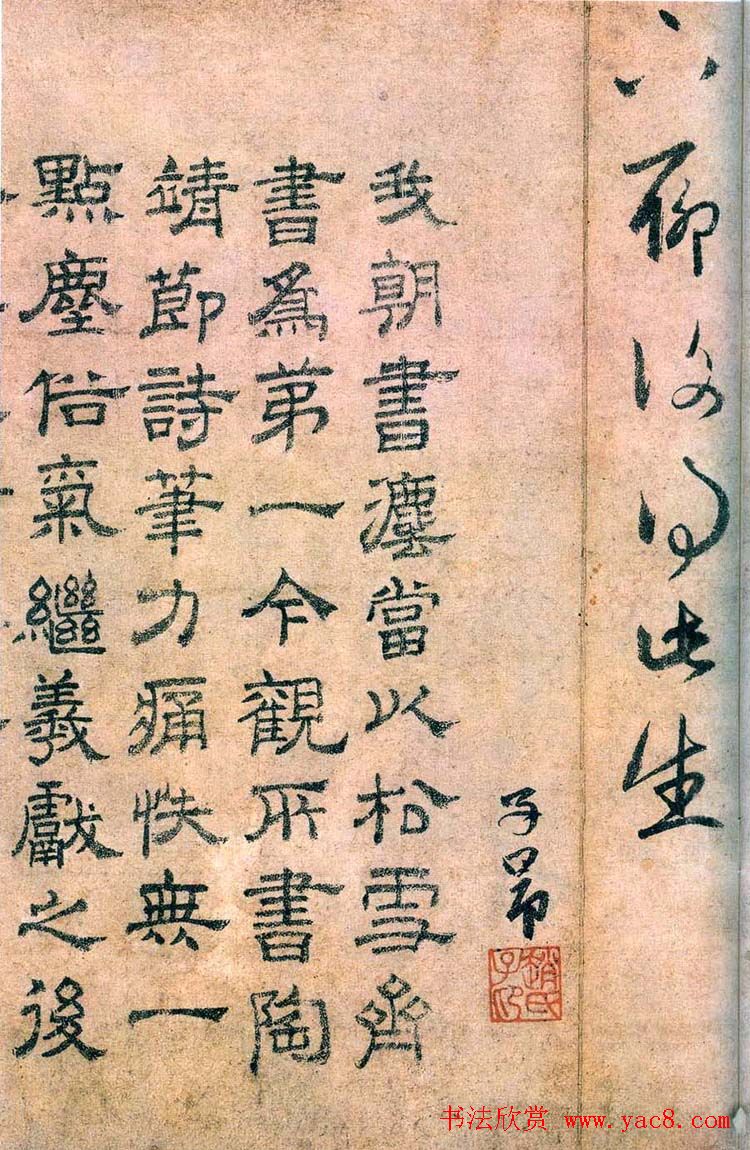 下聊復得此生
子昂
趙氏子昂
我朝書當以松雪齋
書為弟一今觀所書陶
靖節詩筆力痛快無一
點塵俗氣繼羲獻之後
书法欣赏 www.yac8.com